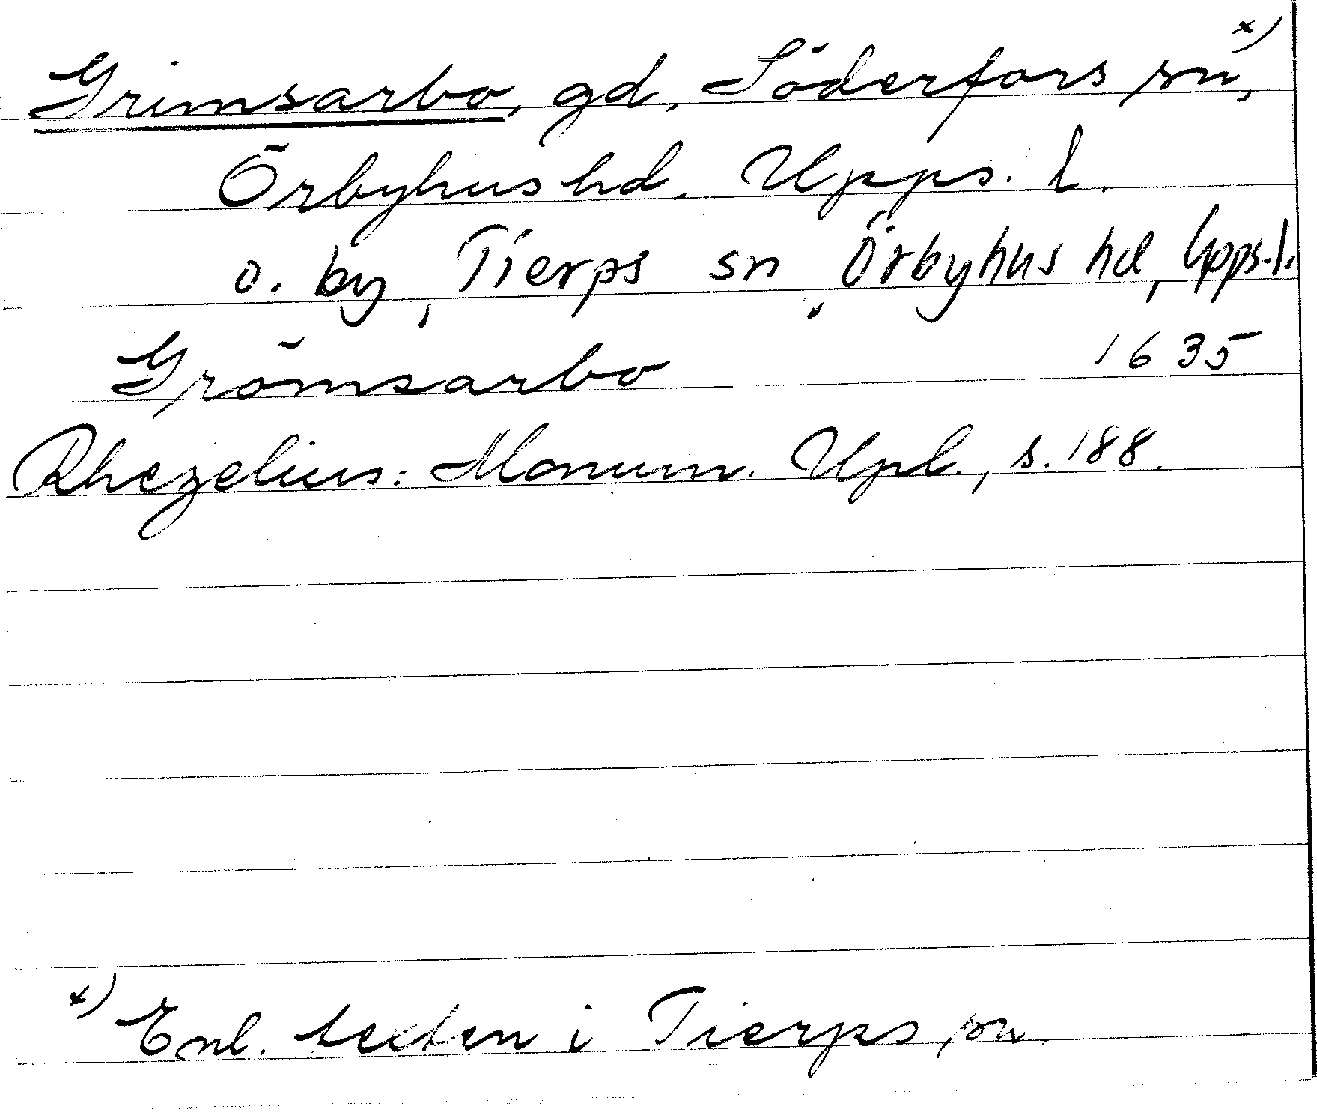 Grimsarbo, gd, Söderfors sn, x)
Örbyhus hd. Upps. l.
o. by, Tierps sn, Örbyhus hd, Upps. l.
Grömsarbo 1635
Rhezelius: Monum. Upl., s. 188.
x) Enl. texten i Tierps sn.